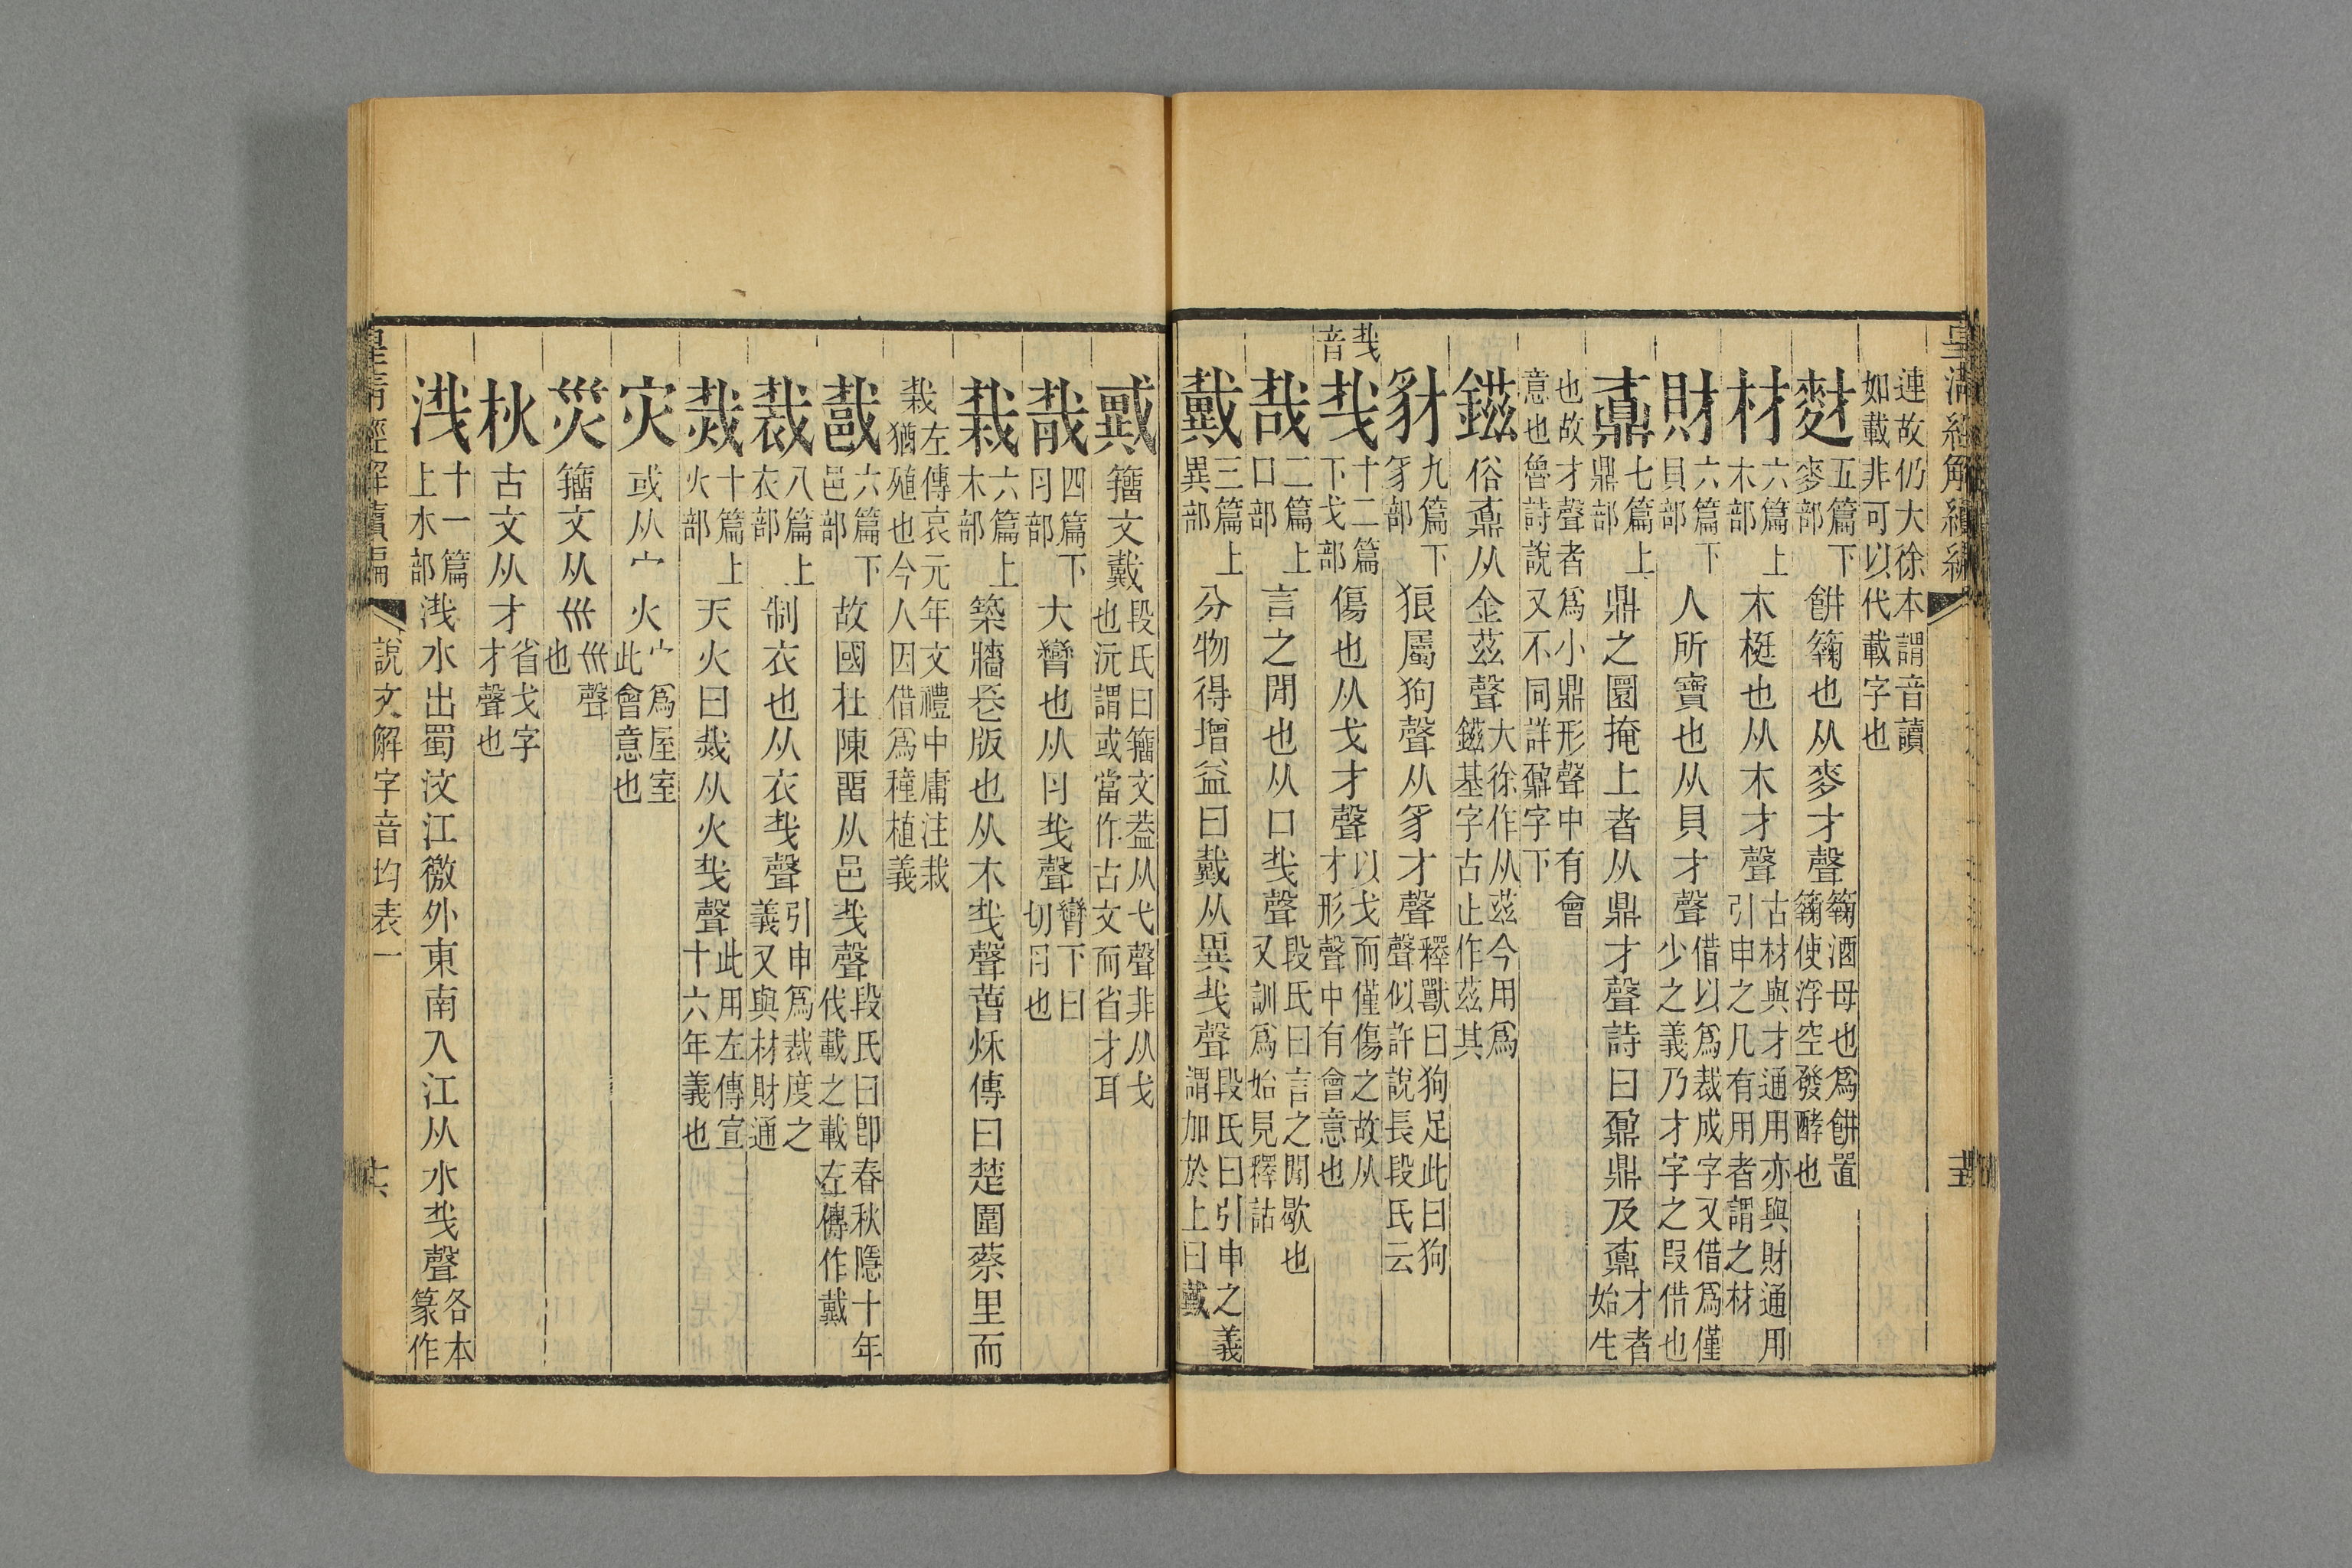 皇清經解續編
連故仍大徐本謂音讀
如載非可以代載字也
䴭五篇下麥部餅䴹也从麥才聲䴹酒母也爲餅置䴹使浮空發酵也
材六篇上木部木梃也从木才聲古材與才通用亦與財通用引申之凡有用者謂之材
財六篇下貝部人所寶也从貝才聲借以爲裁成字又借爲僅少之義乃才字之叚借也
鼒七篇上鼎部鼎之圜掩上者从鼎才聲詩曰鼐鼎及鼒才者始生
也故才聲者爲小鼎形聲中有會
意也魯詩說又不同詳鼐字下
鎡俗鼒从金茲聲大徐作从茲今用爲鎡基字古止作茲其
豺九篇下豸部狼屬狗聲从豸才聲釋獸曰狗足此曰狗聲似許說長段氏云
𢦏音
𢦏十二篇下戈部傷也从戈才聲以戈而僅傷之故从才形聲中有會意也
哉二篇上口部言之閒也从口𢦏聲段氏曰言之閒歇也又訓爲始見釋詁
戴三篇上異部分物得增益曰戴从異𢦏聲段氏曰引申之義謂加於上曰戴
籒文戴段氏曰籒文葢从弋聲非从戈也沅謂或當作古文而省才耳
胾四篇下肉部大臠也从肉𢦏聲臠下曰切肉也
栽六篇上木部築牆長版也从木𢦏聲春秋傳曰楚圍蔡里而
栽左傳哀元年文禮中庸注栽
猶殖也今人因借爲種植義
𨛭六篇下邑部故國在陳畱从邑𢦏聲段氏曰卽春秋隱十年伐載之載左傳作戴
裁八篇上衣部制衣也从衣𢦏聲引申爲裁度之義又與材財通
烖十篇上火部天火曰烖从火𢦏聲此用左傳宣十六年義也
灾或从宀火宀爲屋室此會意也
災籒文从巛巛聲也
𤆎古文从才省戈字才聲也
渽十一篇上水部渽水出蜀汶江徼外東南入江从水𢦏聲各本篆作
皇清經解續編 說文解字音均表一